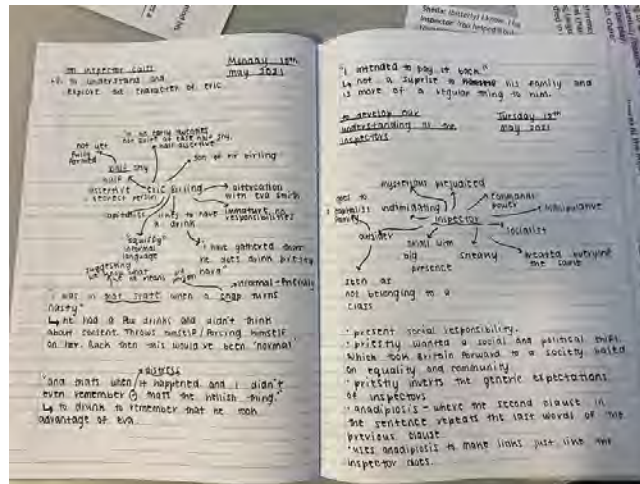 An inspector calls
Monday
May 2021
L.O. to understand and
explore the character of eric
"in his early twenties
not quite at ease half shy,
half assertive"
not yet
fully
formed
half shy
half
assertive
Eric Birling
son of mr birling
altercation
with eva smith
immature, no
responsibilities
likes to have
a drink
"squiffy"
informal
language
"i have gathered
he does drink pretty
hard"
suggesting
informal + friendly
"i was in that state when a chap turns
nasty"
↳ he had a few drinks and didn't think
about consent. Throws himself / forcing himself
on her. Back then this would've been "normal"
"and thats when it happened and i didn't
even remember - thats the hellish thing."
↳ to drunk to remember that he took
advantage of eva
"i intended to pay it back"
↳ not a suprise to his family and
is more of a regular thing to him.
to develop our
understanding of the
inspectors
Tuesday
May 2021
mysterious
prejudiced
commands
power
manipulative
goes to
capitalist
family
inspector
socialist
outsider
small with
big
presence
sneaky
treated everyone
the same
seen as
not belonging to a
class
• present social responsibility.
• priestly wanted a social and political shift
which took Britain forward to a society based
on equality and community
• priestly inverts the generic expectations
of inspectors
• anadiplosis - where the second clause in
the sentence repeats the last words of the
previous clause
• uses anadiplosis to make links just like the
inspector does.